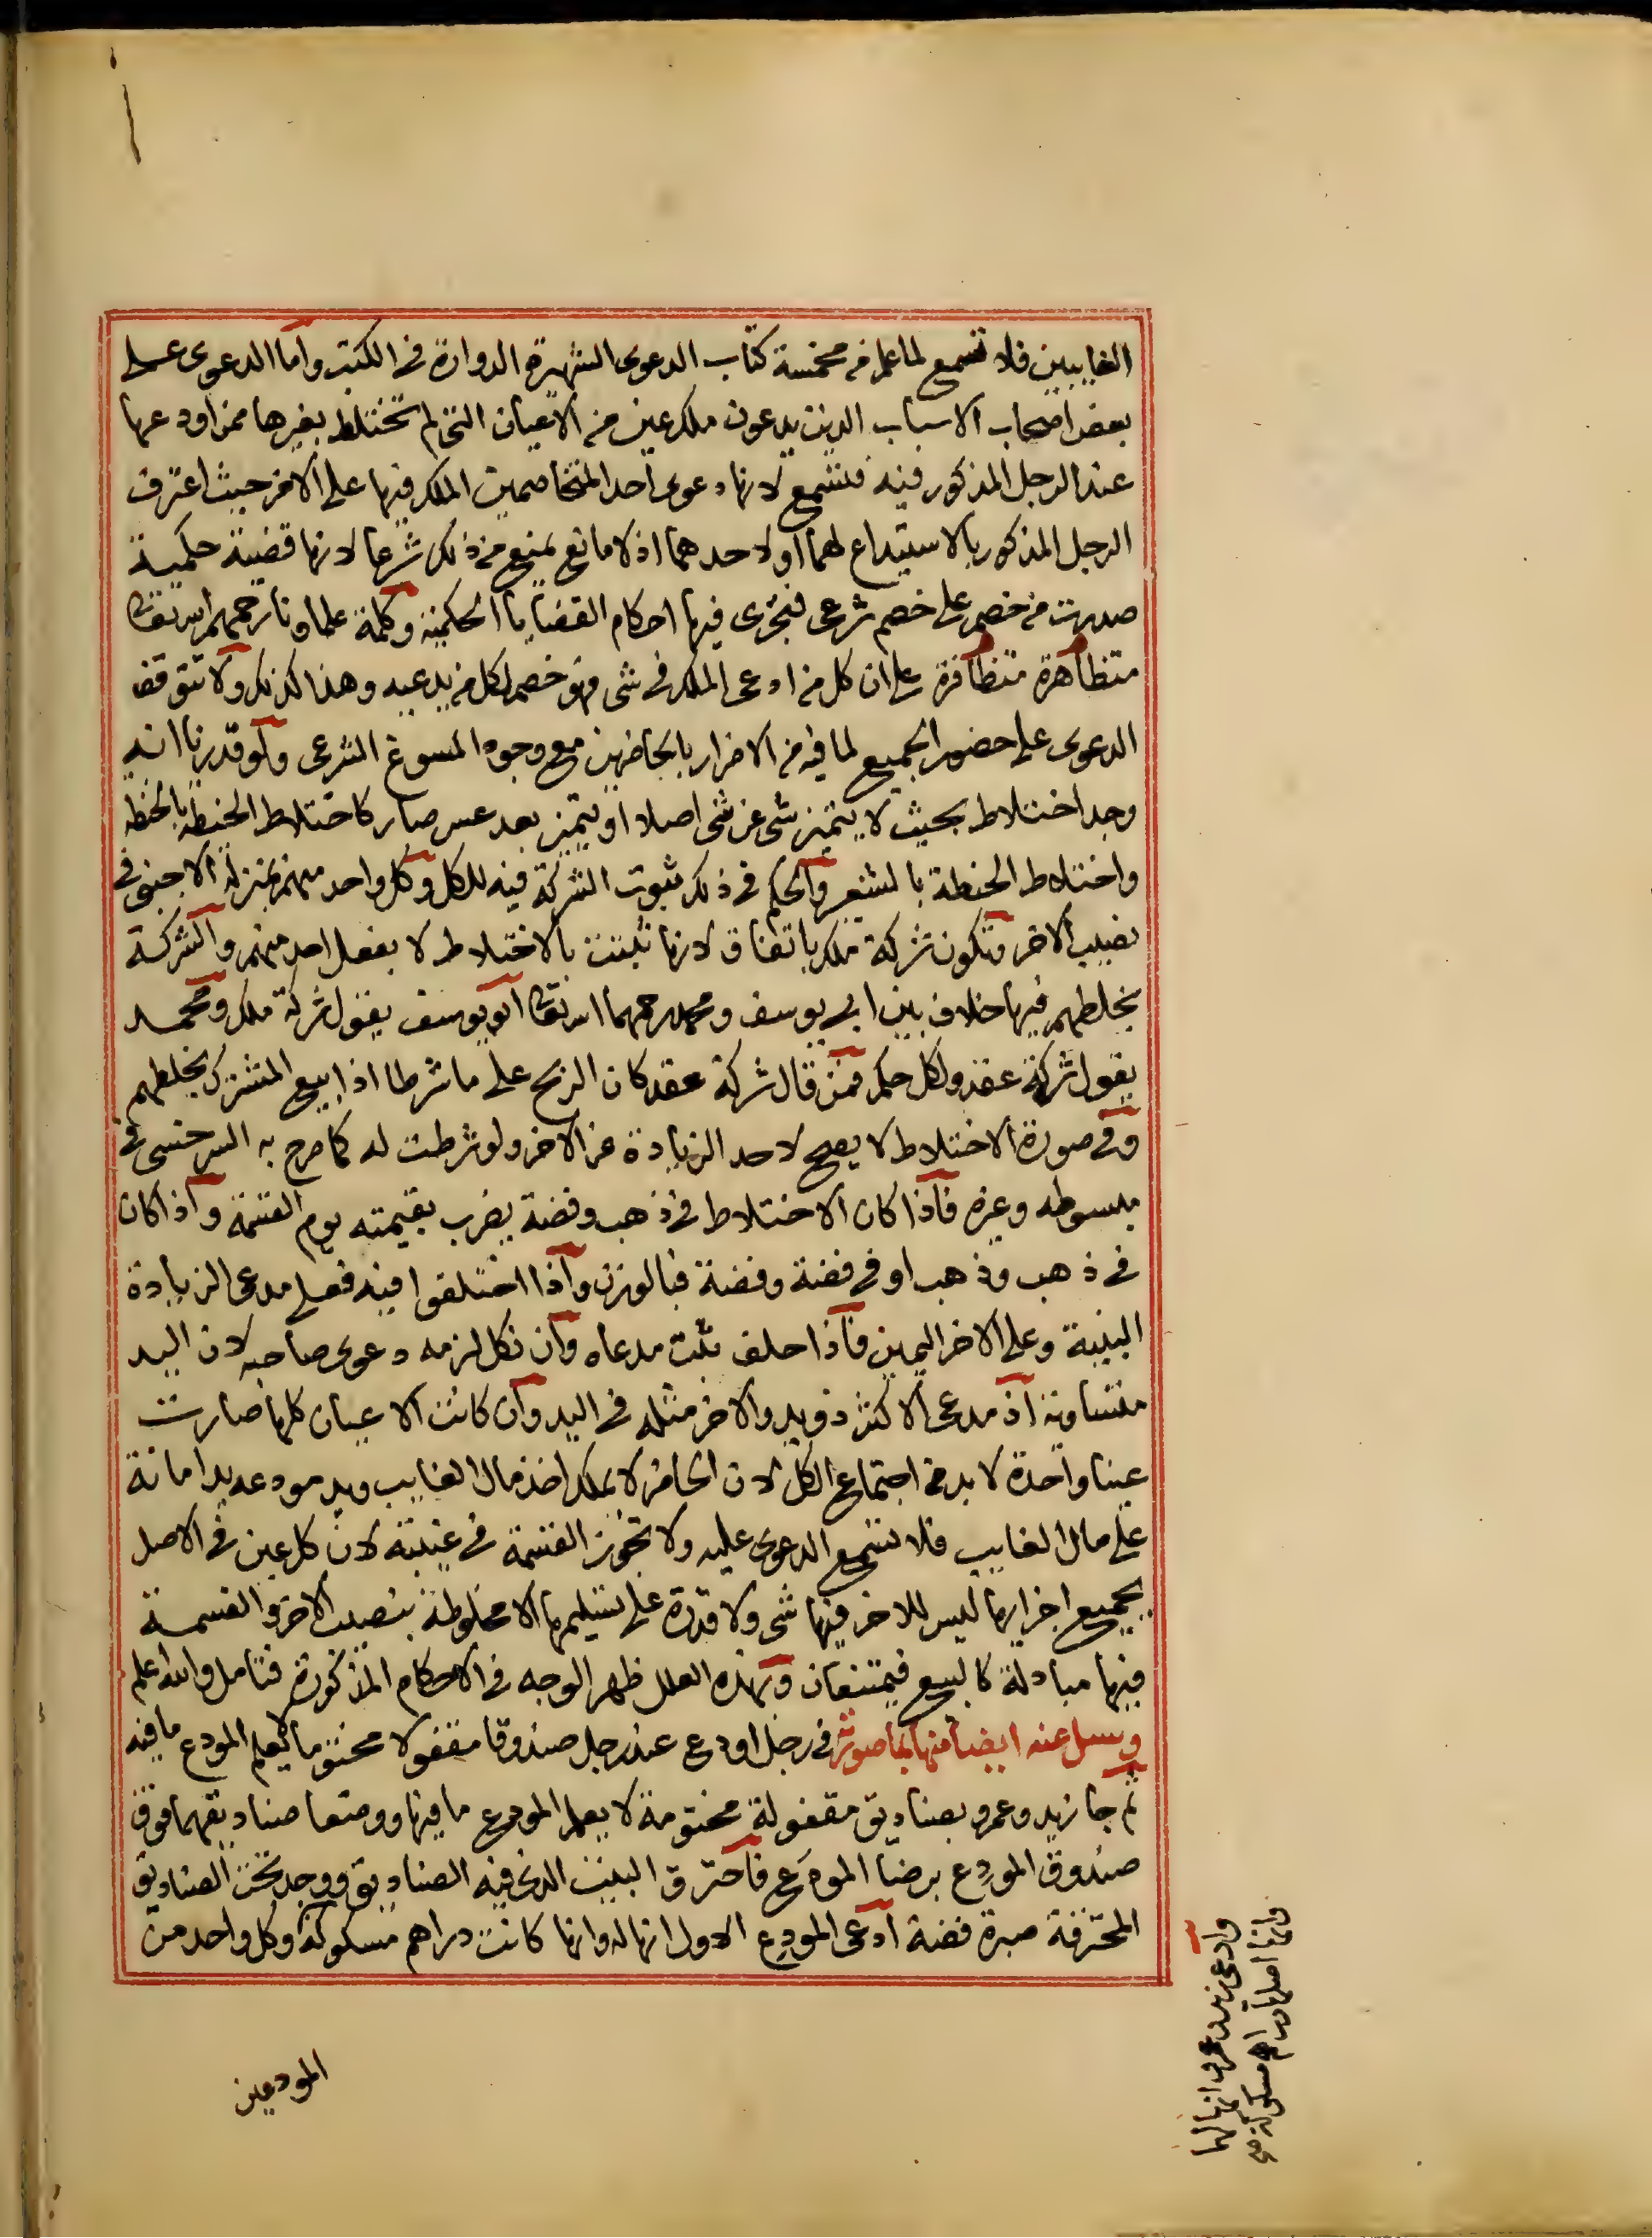 الغايبين فلا تسمع لما علم في مخمسة كتاب الدعوى الشهيرة الدوارة في الكتب واما الدعوى على
بعض اصحاب الاسباب الذين يدعون ملك عين من الاعيان التي لم تختلط بغيرها ممن اودعها
عند الرجل المذكور فيه فتسمع لانها دعوى احد المتخاصمين الملك فيها على الاخر حيث اعترف
الرجل المذكور بالاستيداع لهما او لاحدهما اذ لا مانع يمنع من ذلك شرعا لانها قضية حكمية
صدرت من خصم على خصم شرعى فتجرى فيها احكام القضايا الحكمية وكلمة علماونا رحمهم الله تعالى
متظاهرة متظافرة على ان كل من ادعى الملك في شى فهو خصم لكل من يدعيه وهذا كذلك ولا تتوقف
الدعوى على حضور الجميع لما فيه من الاضرار بالحاضرين مع وجود المسوغ الشرعى ولو قدرنا انه
وجد اختلاط بحيث لا يتميز شى عن شى اصلا او يتميز بعد عسر صار كاختلاط الحنطة بالحنطة
واختلاط الحنطة بالشعير والحكم في ذلك ثبوت الشركة فيه للكل وكل واحد منهم بمنزلة الاجنبى في
نصيب الاخر وتكون شركة ملك باتفاق لانها ثبتت بالاختلاط لا بفعل احد منهم والشركة
بخلطهم فيها خلاف بين ابى يوسف ومحمد رحمهما الله تعالى ابو يوسف يقول شركة ملك ومحمد
يقول شركة عقد ولكل حكم فمن قال شركة عقد كان الربح على ما شرطا اذا بيع المشترك بخلطهم
وفي صورة الاختلاط لا يصح لاحد الزيادة عن الاخر ولو شرطت له كما صرح به السرخسى في
مبسوطه وغيره فاذا كان الاختلاط في ذهب وفضة يضرب بقيمته يوم القسمة واذا كان
في ذهب وذهب او في فضة وفضة فبالوزن واذا اختلفوا فيه فعلى مدعى الزيادة
البينة وعلى الاخر اليمين فاذا حلف ثبت مدعاه وان نكل لزمه دعوى صاحبه لان اليد
متساوية اذ مدعى الاكثر ذو يد والاخر مثله في اليد وان كانت الاعيان كلها صارت
عينا واحدة لا بد من اجتماع الكل لان الحاضر لا يملك اخذ مال الغايب ويد مودعه يد امانة
على مال الغايب فلا تسمع الدعوى عليه ولا تجوز القسمة في غيبته لان كل عين في الاصل
بجميع اجزايها ليس للاخر فيها شى ولا قدرة على تسليمها الا مخلوطة بنصيب الاخر والقسمة
فيها مبادلة كالبيع فيمتنعان وبهذه العلل ظهر الوجه في الاحكام المذكورة فتامل والله اعلم
وسل عنه ايضا منها بما صورته في رجل اودع عند رجل صندوقا مقفولا مختوما لا يعلم المودع ما فيه
ثم جا زيد وعمرو بصناديق مقفولة مختومة لا يعلم المودع ما فيها ووضعا صناديقهما فوق
صندوق المودع برضا المودع فاحترق البيت الذى فيه الصناديق ووجد تحت الصناديق
المحترقة صبرة فضة ادعى المودع الاول انها له وانها كانت دراهم مسكوكة وكل واحد من
المودعين
وادعى زيد وعمرو انها لهما
وانها اصلها دراهم مسكوكة